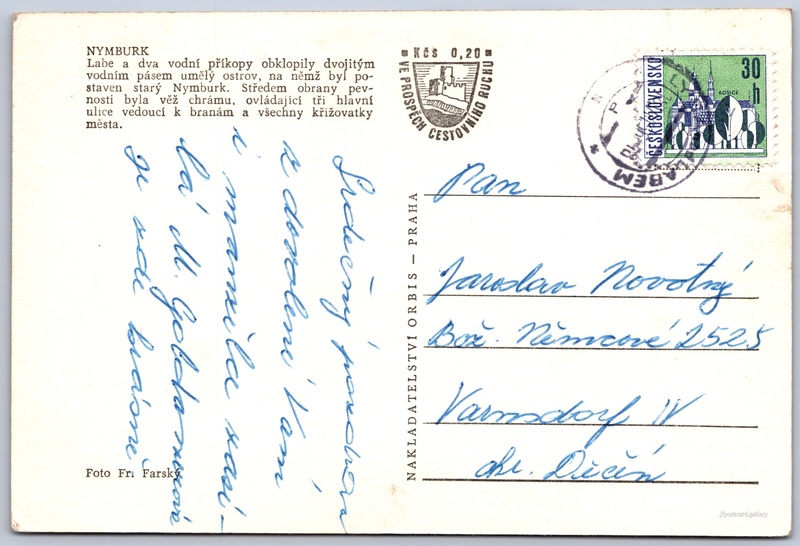 NYMBURK
Labe a dva vodní příkopy obklopily dvojitým
vodním pásem umělý ostrov, na němž byl po-
staven starý Nymburk. Středem obrany pev-
nosti byla věž chrámu, ovládající tři hlavní
ulice vedoucí k branám a všechny křižovatky
města.
Kčs 0,20
VE PROSPĚCH CESTOVNÍHO RUCHU
ČESKOSLOVENSKO
30 h
KOŠICE
LABEM
Srdečný pozdrav
z dovolené Vám
i mamince zasí-
lá M. Golda
je zde krásně.
Foto Fr. Farský
NAKLADATELSTVÍ ORBIS — PRAHA
Pan
Jaroslav Novotný
Bož. Němcové 2525
Varnsdorf IV
okr. Děčín